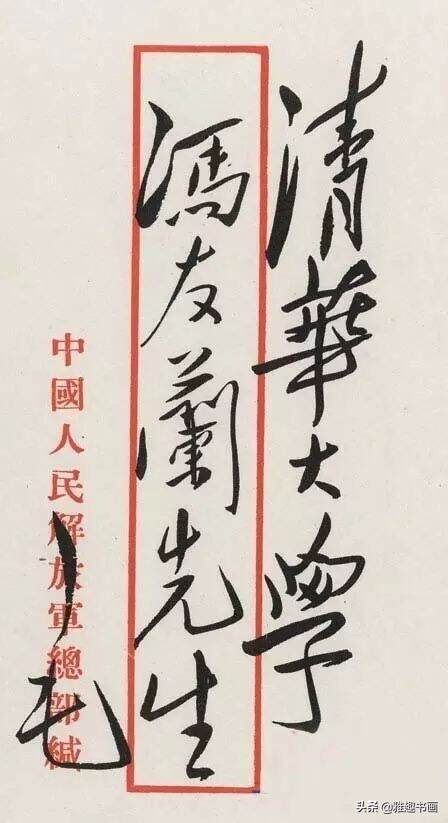 清華大學
馮友蘭先生
中國人民解放軍總部緘
毛
头条 @雅趣书画